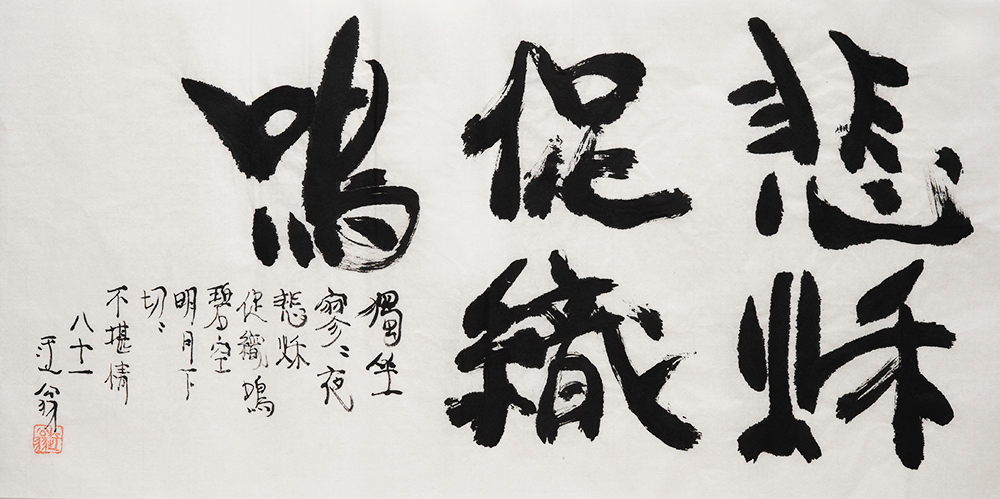 悲秌
促織
鳴
獨坐
寥々夜
悲秌
促織鳴
碧空
明月下
切々
不堪情
八十一
迂翁